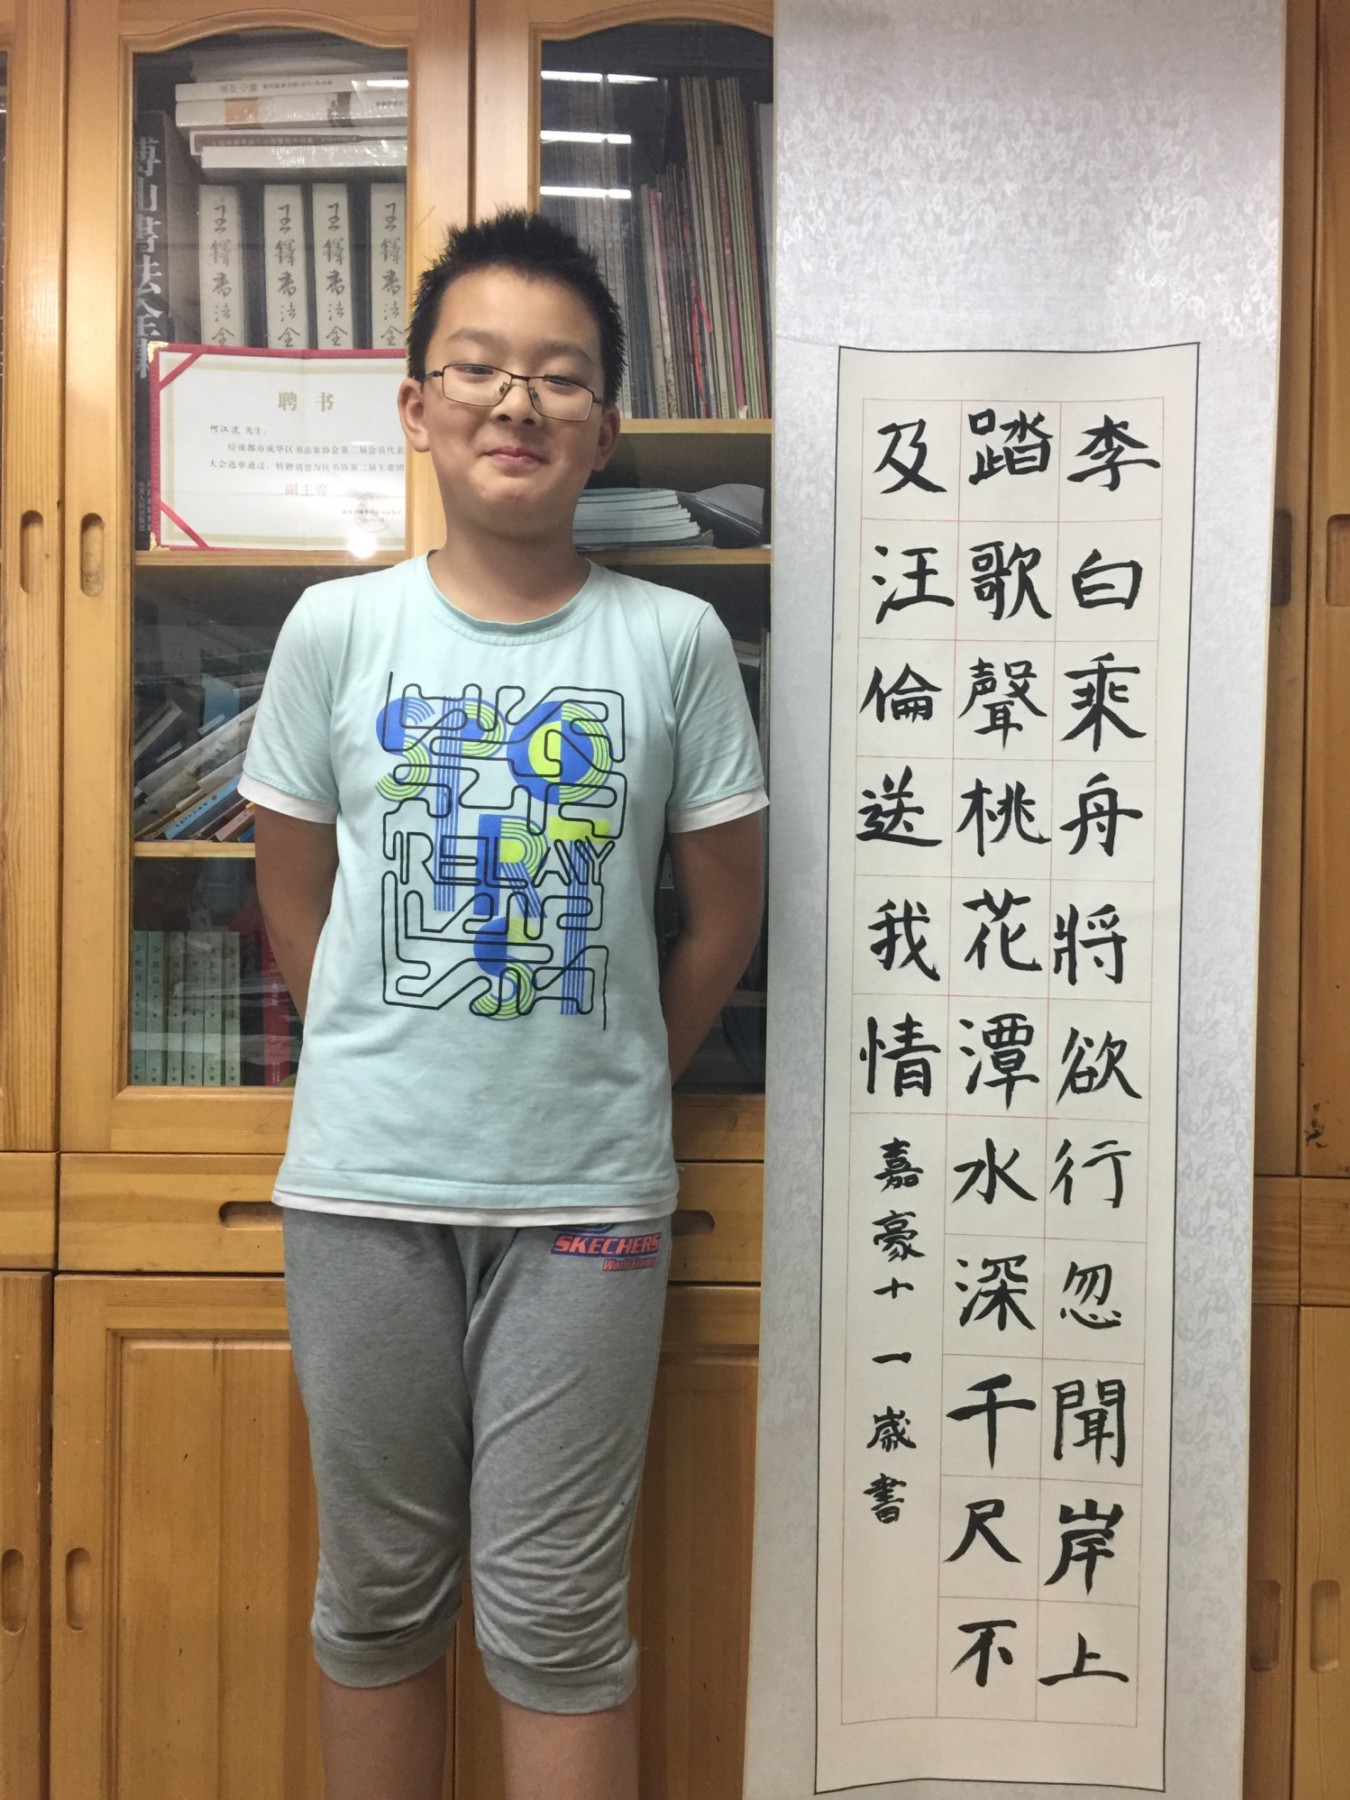 李白乘舟將欲行忽聞岸上
踏歌聲桃花潭水深千尺不
及汪倫送我情
嘉豪十一歲書
聘书
先生:
经成都市成华区书法家协会第二届会员代表
大会选举通过,特聘请您为区书协第二届主席团
副主席
王鐸書法全
王鐸書法全
王鐸書法全
王鐸書法全
山書法全
RELAY
SKECHERS